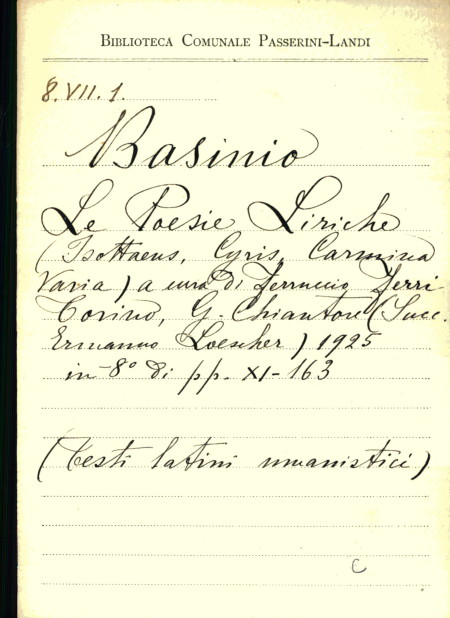 BIBLIOTECA COMUNALE PASSERINI-LANDI
8. VII. 1.
Basinio
Le Poesie Liriche
(Isottaeus, Cyris, Carmina
Varia) a cura di Ferruccio Ferri
Torino, G. Chiantore (Succ.
Ermanno Loescher) 1925
in-8° di pp. XI-163
(Testi latini umanistici)
C